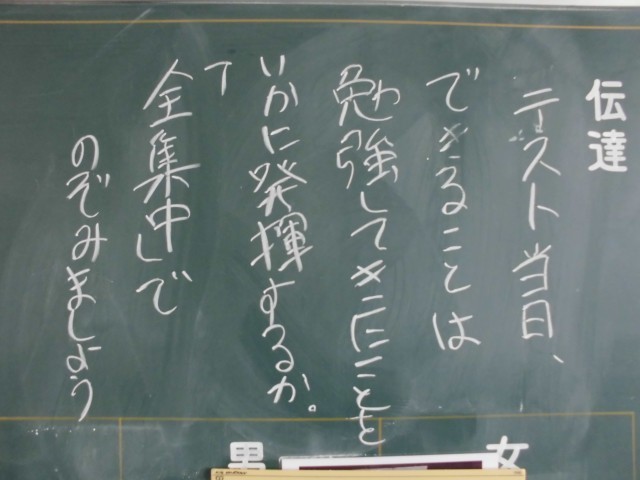 伝達
テスト当日、
できることは
勉強してきたことを
いかに発揮するか。
「全集中」で
のぞみましょう
男
女